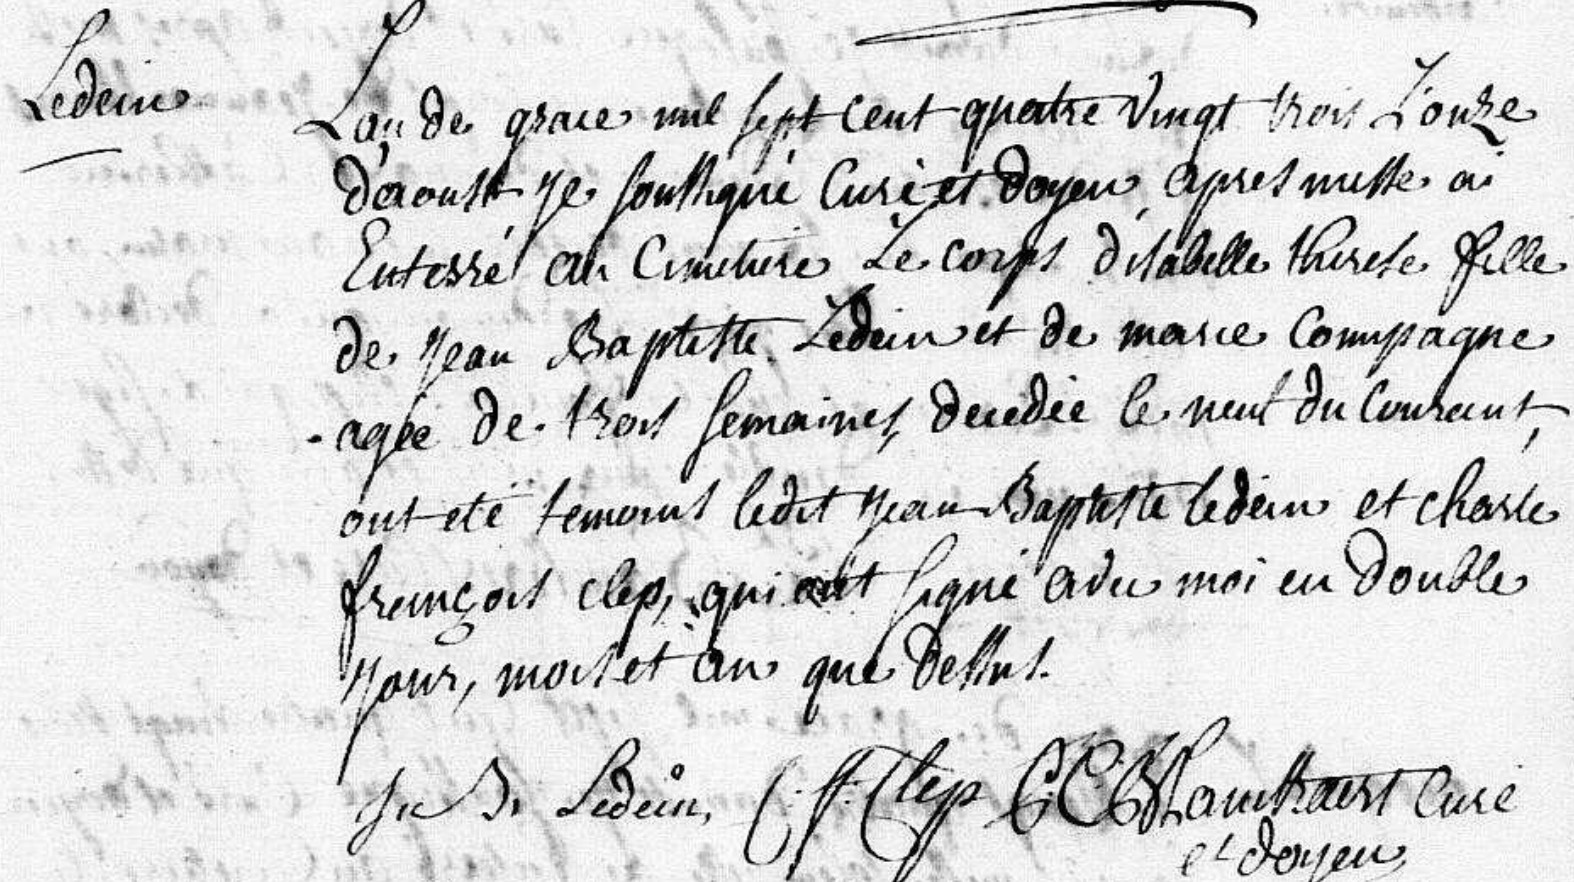 Ledein
L'an de grace mil sept cent quatre vingt trois L'onze
d'aoust je soussigné Curé et doyen, apres messe ai
Enterré au Cimetiere Le corps d'isabelle therese fille
de jean Baptiste Ledein et de marie Compagne
agée de trois semaines, decedée le neuf du Courant,
ont eté temoins ledit jean Baptiste ledein et charle
françois clep, qui ont signé avec moi en double
jour, mois et an que dessus.
Je B. Ledein, C: f: Clep Curé
et doyen